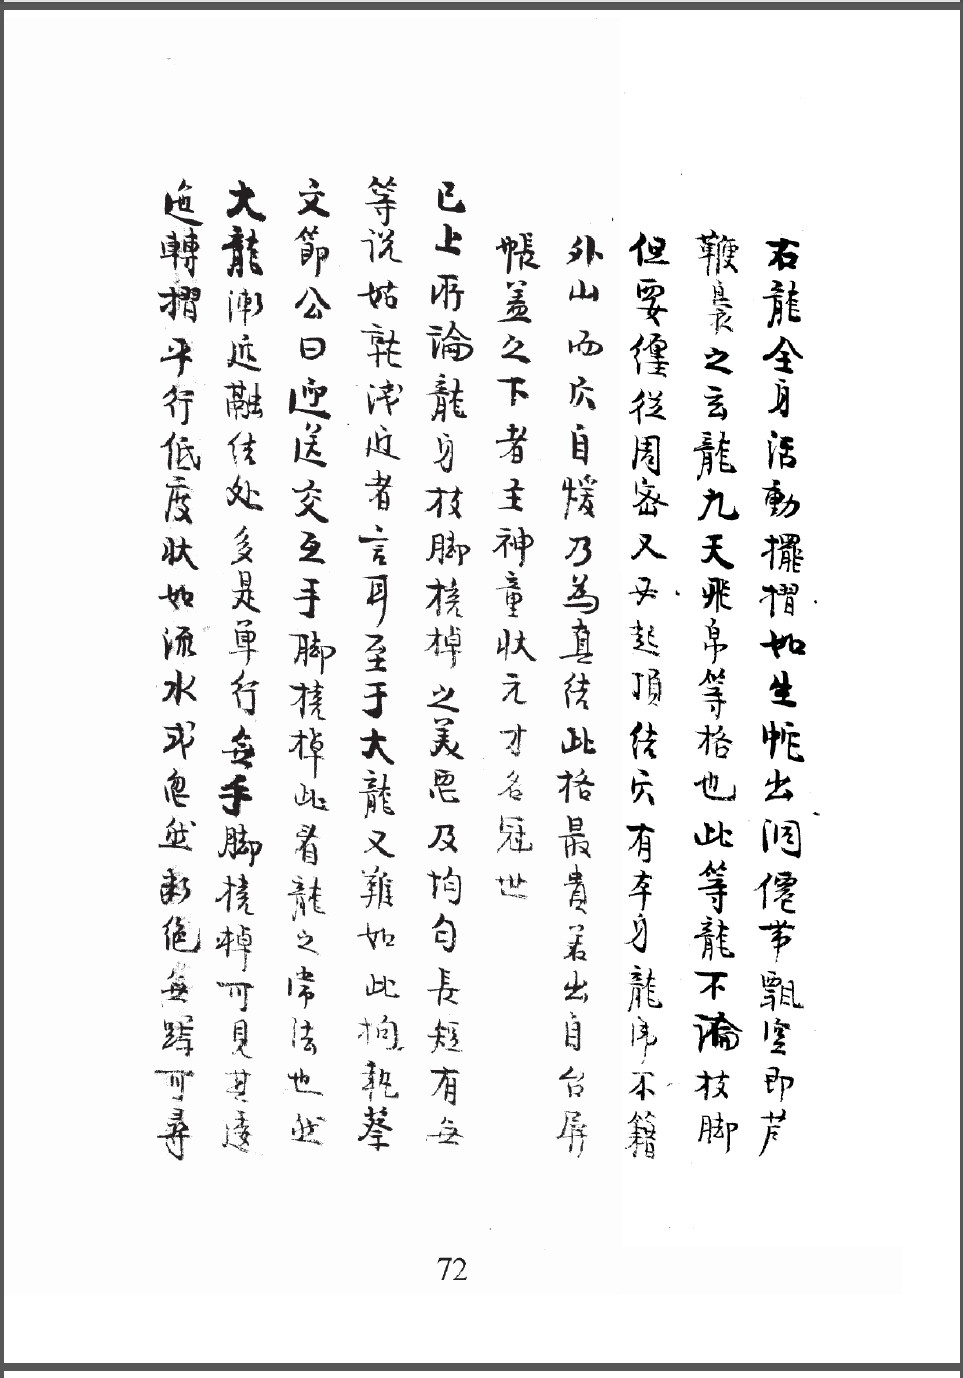 右龍全身活動擺摺如生蛇出洞僊带飄空即芦
鞭裊之玄龍九天飛帛等格也此等龍不論枝脚
但要纏從周密又必起頂结穴有本身龍虎不籍
外山而穴自煖乃為真结此格最貴若出自台屏
帳盖之下者主神童狀元才名冠世
已上所論龍身枝脚橈棹之美恶及均匀長短有無
等说姑就浅近者言耳至于大龍又難如此拘執蔡
文節公曰迎送交互手脚橈棹此看龍之常法也然
大龍漸近融结处多是单行無手脚橈棹可見其逶
迤轉摺平行低度狀如流水或忽然断絶無踪可尋
72